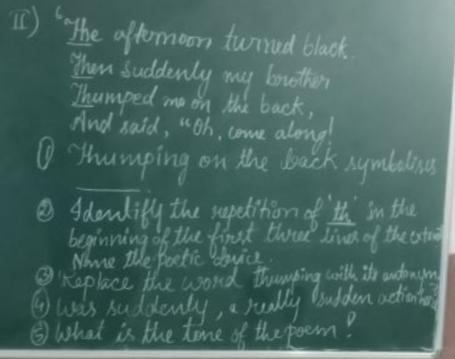 II) "The afternoon turned black.
Then suddenly my brother
Thumped me on the back,
And said, "Oh, come along!
① Thumping on the back symbolises
______.
② Identify the repetition of 'th' in the
beginning of the first three lines of the
Name the poetic device.
③ Replace the word thumping with its antonym
④ Was suddenly, a really sudden action
⑤ What is the tone of the poem?